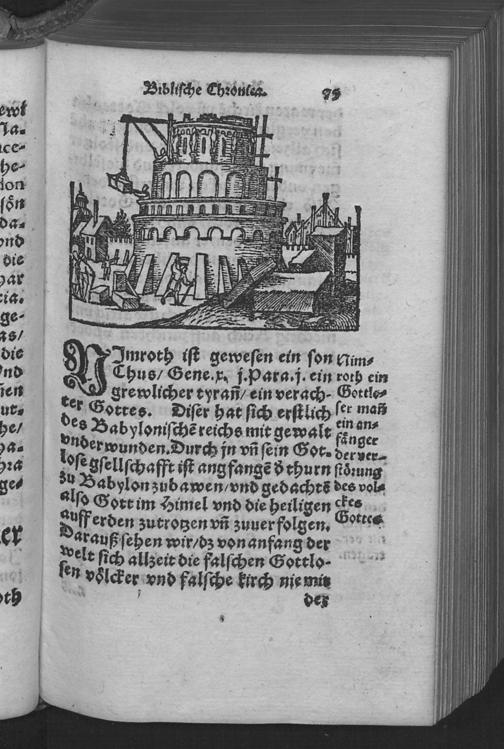 Biblische Chronica.
Nimroth ist gewesen ein son
Chus/ Gene.x. j.Para.j. ein
grewlicher tyrañ/ ein verach-
ter Gottes. Diser hat sich erstlich
des Babylonischẽ reichs mit gewalt
vnderwunden. Durch jn vñ sein Got-
lose gsellschafft ist angfangẽ d thurn
zu Babylon zubawen/ vnd gedachtẽ
also Gott im Himel vnd die heiligen
auff erden zutrotzen vñ zuuerfolgen.
Darauß sehen wir/ dz von anfang der
welt sich allzeit die falschen Gottlo-
sen völcker vnd falsche kirch nie mit
der
Nim-
roth ein
Gottlo-
ser mañ
ein an-
fänger
der ver-
störung
des vol-
ckes
Gottes
ewt
Na-
ce-
he-
lon
sön
da-
vnd
die
har
cia.
ge-
as/
die
Vnd
ñen
ut-
he/
ya-
hra
ge-
er
oth